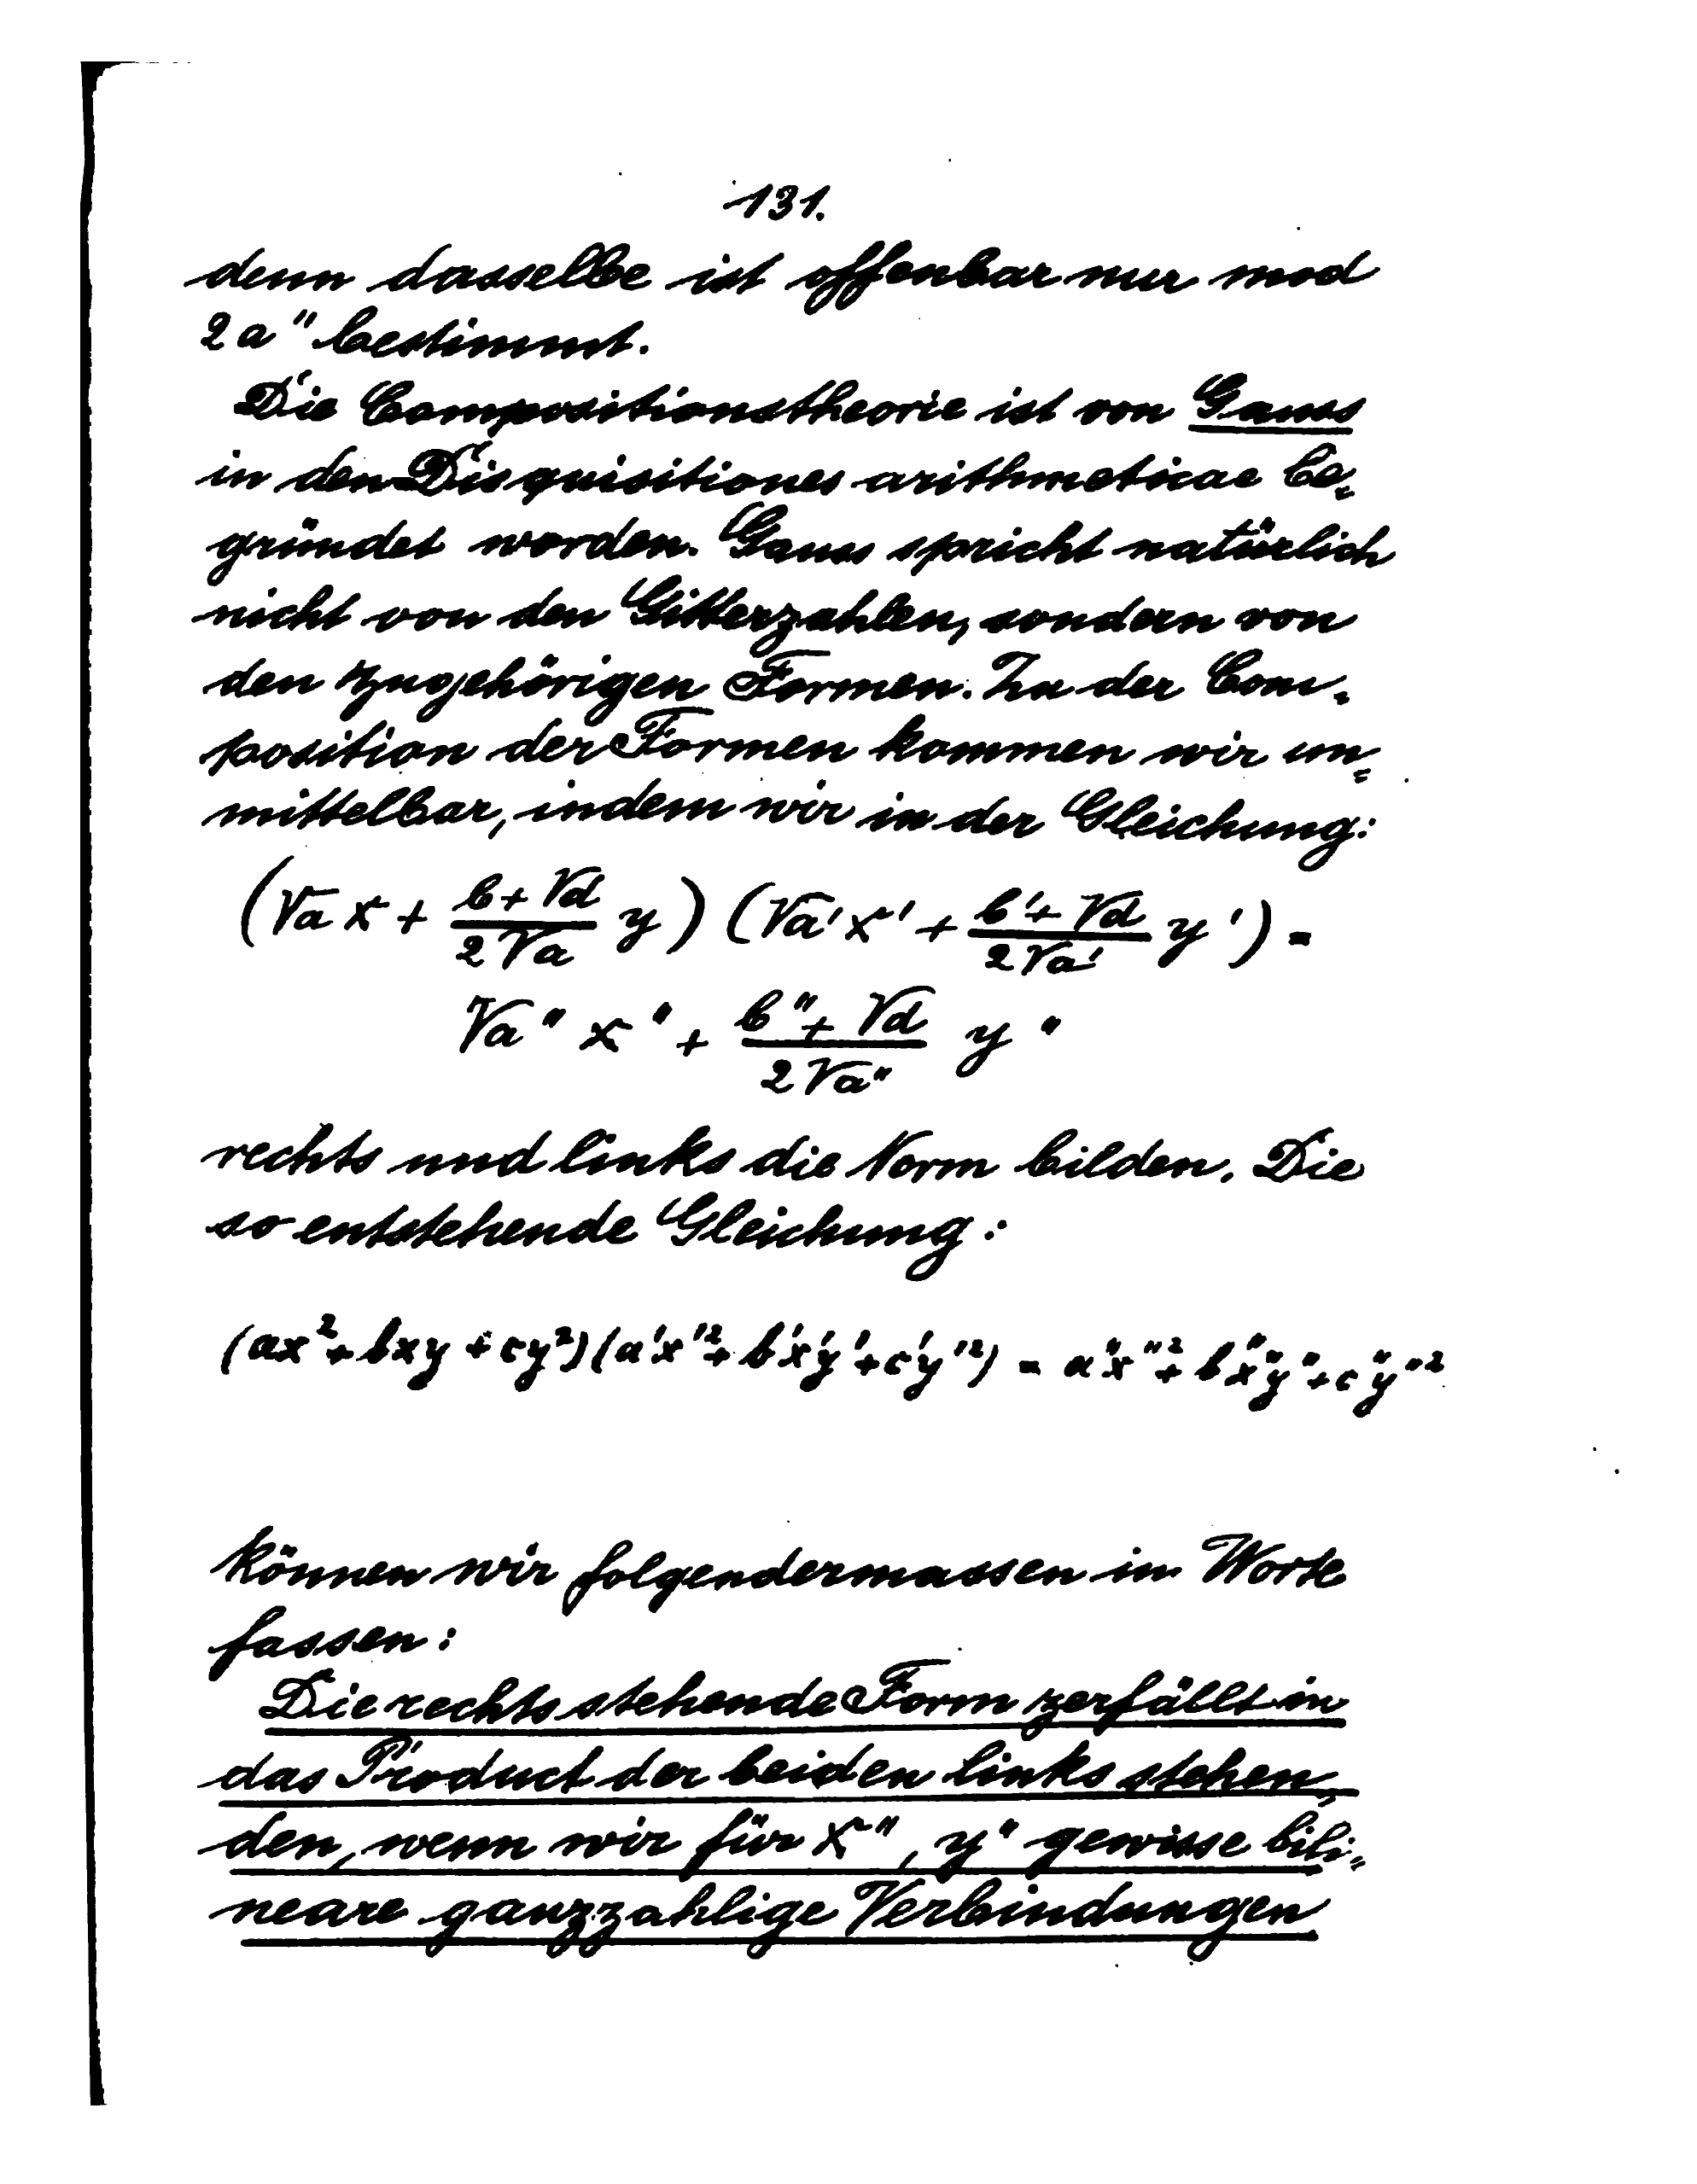 131.
denn dasselbe ist offenbar nur mod
2a" bestimmt.
Die Compositionstheorie ist von Gauss
in den Disquisitiones arithmeticae be=
gründet worden. Gauss spricht natürlich
nicht von den Gitterzahlen, sondern von
den zugehörigen Formen. Zu der Com=
position der Formen kommen wir un=
mittelbar, indem wir in der Gleichung:
(√a x + (b + √d)/(2√a) y) (√a' x' + (b' + √d)/(2√a') y') =
√a" x" + (b" + √d)/(2√a") y"
rechts und links die Norm bilden. Die
so entstehende Gleichung:
(ax² + bxy + cy²)(a'x'² + b'x'y' + c'y'²) = a"x"² + b"x"y" + c"y"²
können wir folgendermassen in Worte
fassen:
Die rechts stehende Form zerfällt in
das Product der beiden links stehen=
den, wenn wir für x", y" gewisse bili=
neare ganzzahlige Verbindungen